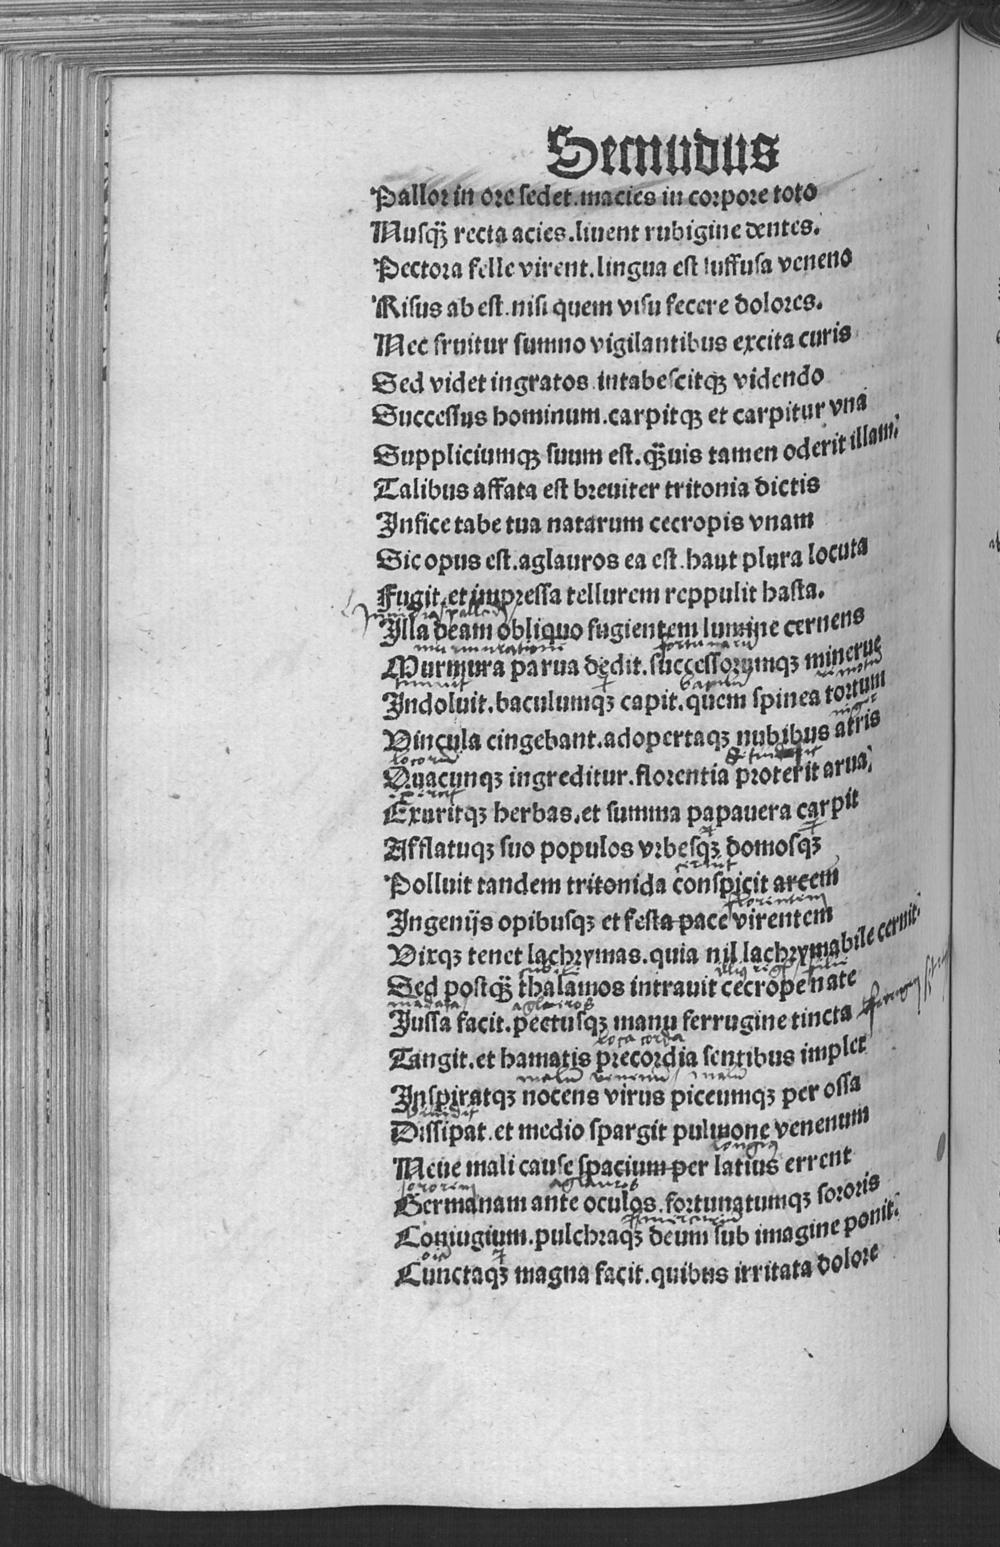 Secnudus
Pallor in ore sedet.macies in corpore toto
Nusq̃ recta acies.liuent rubigine dentes.
Pectora felle virent.lingua est suffusa veneno
Risus ab est.nisi quem visu fecere dolores.
Nec fruitur sumno vigilantibus excita curis
Sed videt ingratos intabescitqꝫ videndo
Successus hominum.carpitqꝫ et carpitur vna
Suppliciumqꝫ suum est.q̃uis tamen oderit illam.
Talibus affata est breuiter tritonia dictis
Infice tabe tua natarum cecropis vnam
Sic opus est.aglauros ea est.haut plura locuta
Fugit.et impressa tellurem reppulit hasta.
Illa deam obliquo fugientem lumine cernens
murmuratione
Murmura parua dedit.successorumqꝫ minerue
Indoluit.baculumqꝫ capit.quem spinea tortum
Vincula cingebant.adopertaqꝫ nubibus atris
locorum
Quacunqꝫ ingreditur.florentia proterit arua.
Exuritqꝫ herbas.et summa papauera carpit
Afflatuqꝫ suo populos vrbesqꝫ domosqꝫ
Polluit tandem tritonida conspicit arcem
florentem
Ingenijs opibusqꝫ et festa pace virentem
Vixqꝫ tenet lachrymas.quia nil lachrymabile cernit.
Sed postq̃ thalamos intrauit cecrope nate
mandata aglauros
Iussa facit.pectusqꝫ manu ferrugine tincta
loca corda
Tangit.et hamatis precordia sentibus implet
malũ venenũ
Inspiratqꝫ nocens virus piceumqꝫ per ossa
Dissipat.et medio spargit pulmone venenum
longiꝰ
Neue mali cause spacium per latius errent
sororem aglauros
Germanam ante oculos.fortunatumqꝫ sororis
Coniugium.pulchraqꝫ deum sub imagine ponit.
Cunctaqꝫ magna facit.quibus irritata dolore